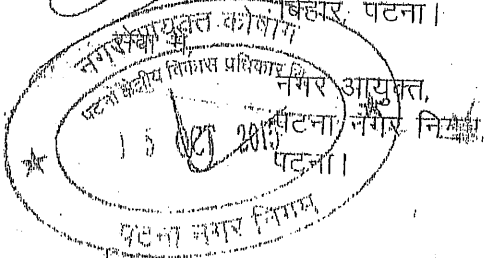 बिहार, पटना।
सेवा में
नगर आयुक्त,
पटना नगर निगम,
पटना।
नगर आयुक्त कोषांग
पटना क्षेत्रीय विकास प्राधिकार
15 OCT 2015
पटना नगर निगम